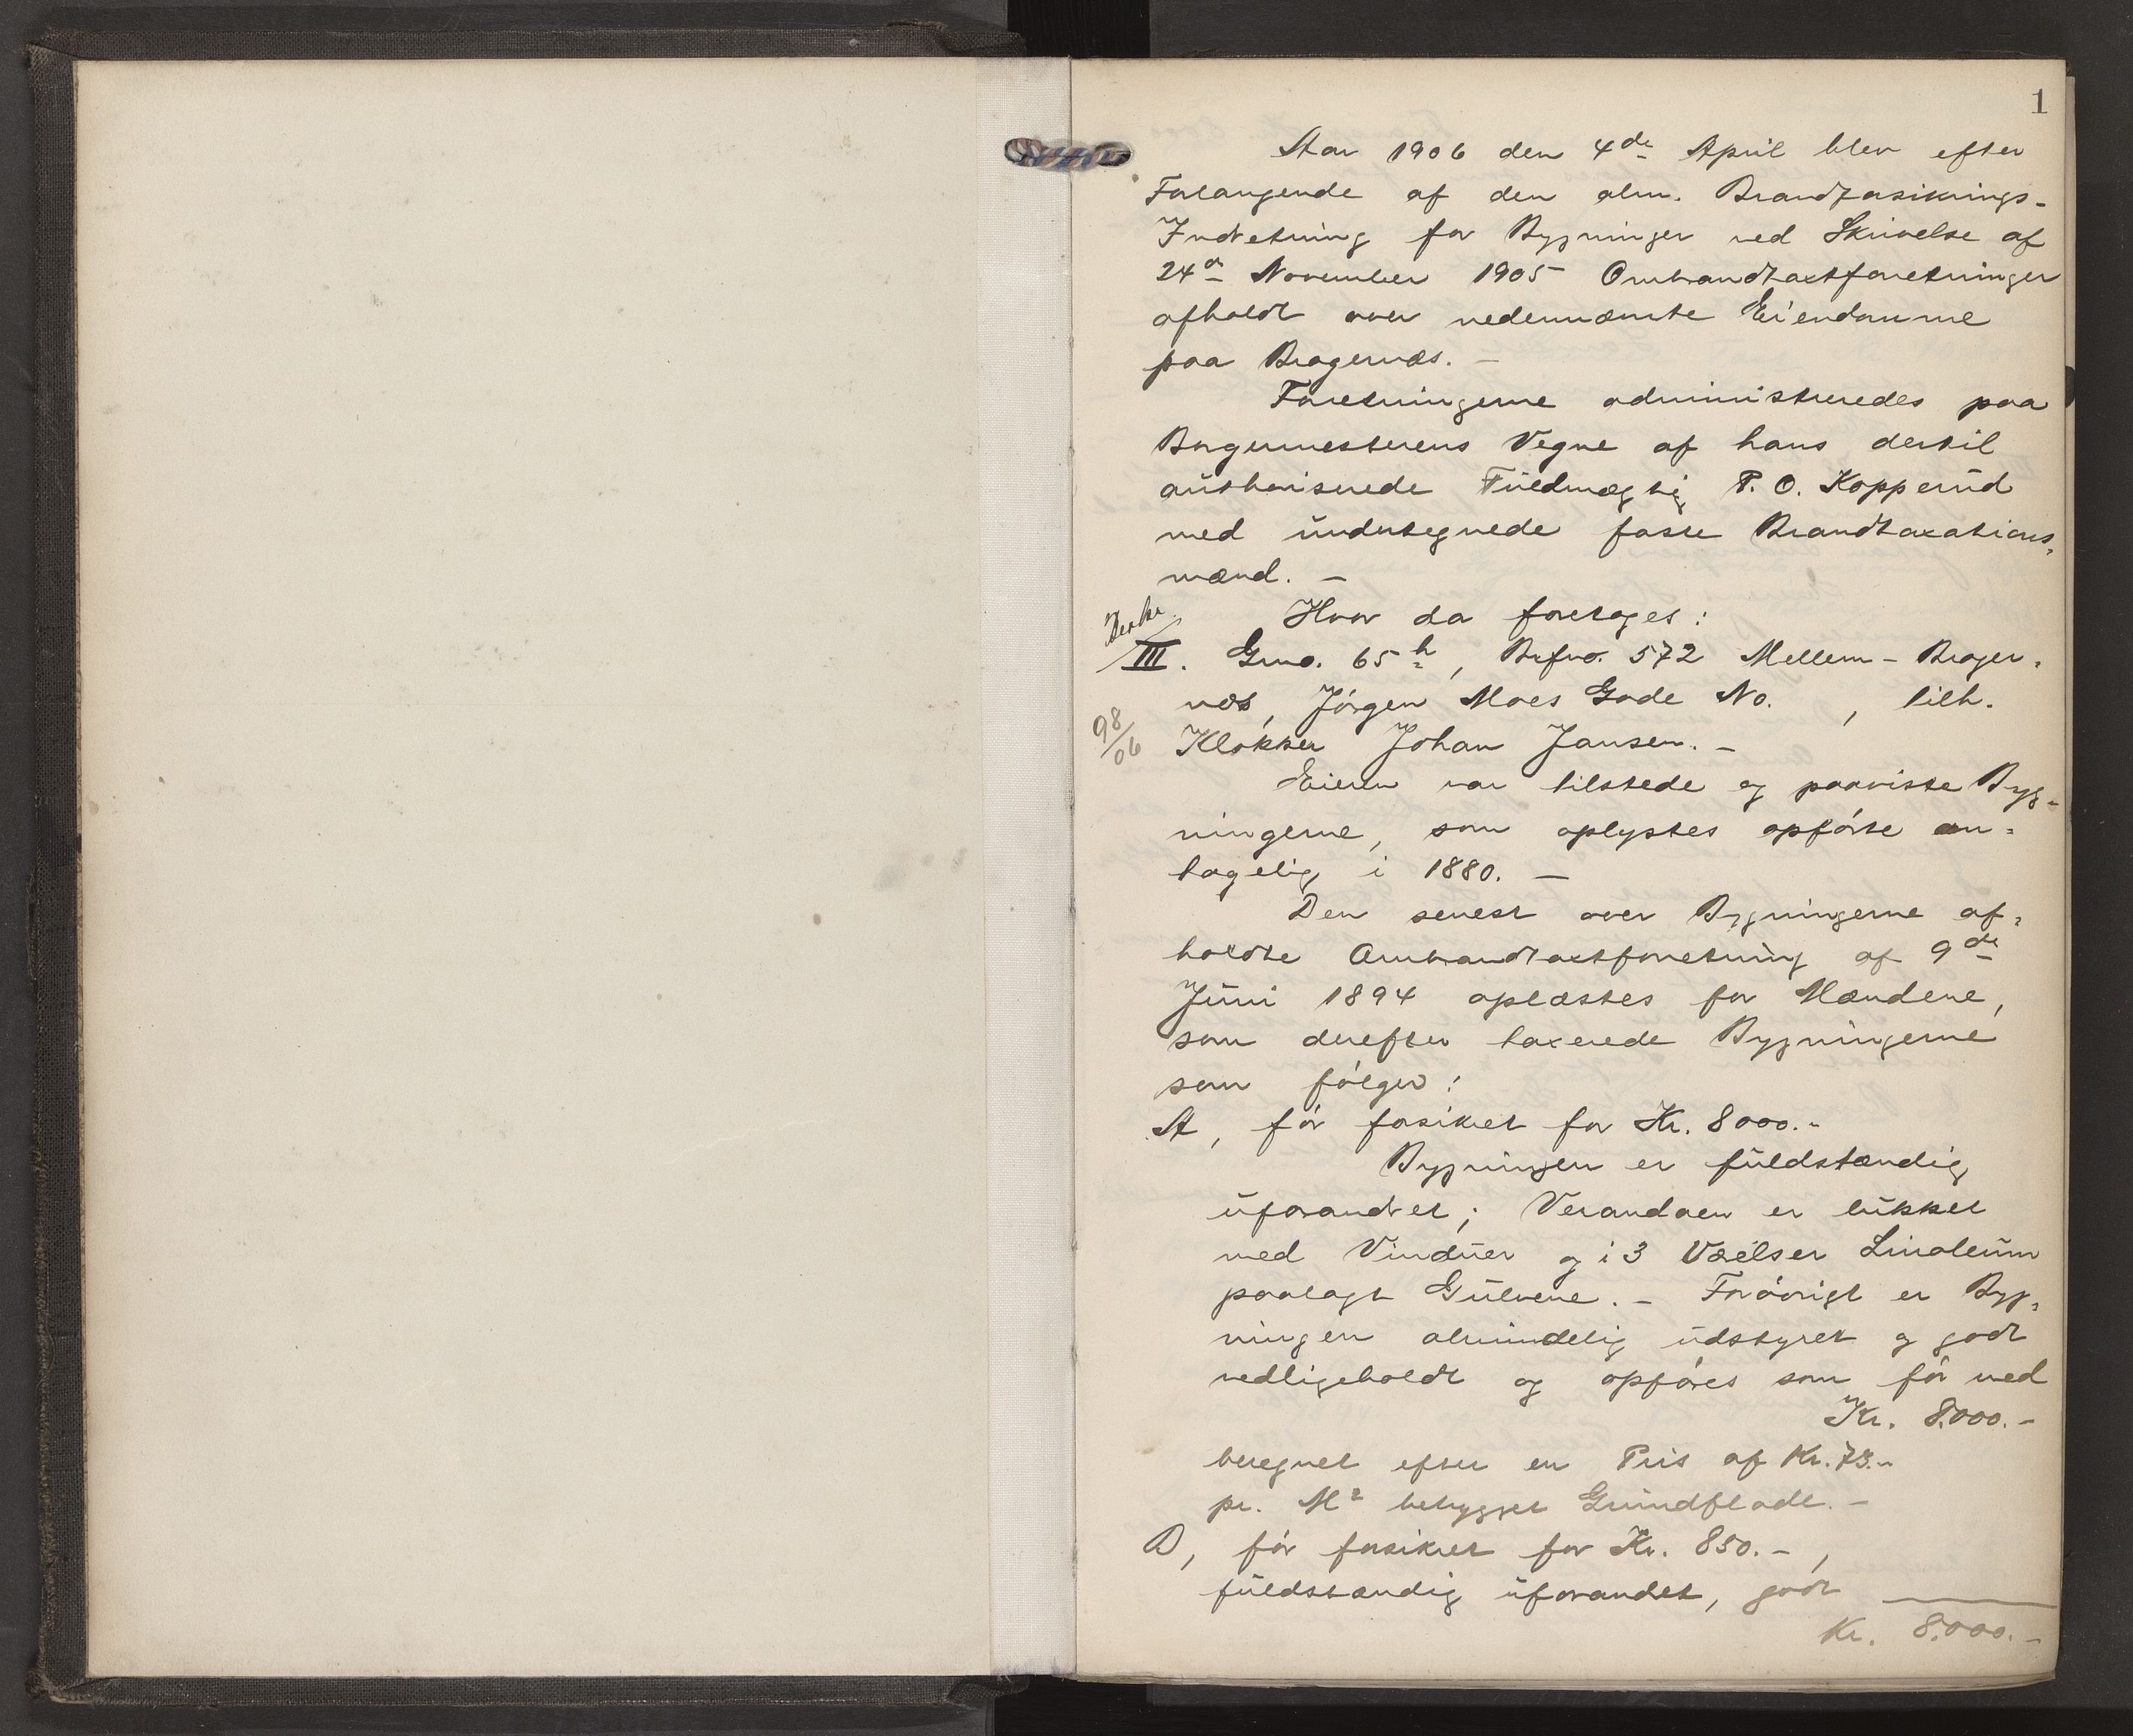 1
Aar 1906 den 4de April blev efter
Forlangende af den alm. Brandforsikrings-
Indretning for Bygninger ved Skrivelse af
24de November 1905 Ombrandtaxtforretninger
afholdt over nedennævnte Eiendomme
paa Bragernæs. -
Forretningerne administreredes paa
Borgermesterens Vegne af hans dertil
authoriserede Fuldmægtig P. O. Kopperud
med undertegnede faste Brandtaxations-
mænd. -
Hvor da foretoges:
III. Gno. 65 h, Brfno. 572 Mellem-Brager-
næs, Jörgen Moes Gade No. , tilh.
98/06
Klokker Johan Jansen. -
Eieren var tilstede og paaviste Byg-
ningerne, som oplystes opförte an-
tagelig i 1880. -
Den senest over Bygningerne af-
holdte Ombrandtaxtforretning af 9de
Juni 1894 oplæstes for Mændene,
som derefter taxerede Bygningerne
som fölger:
A, för forsikret for Kr. 8000.-
Bygningen er fuldstændig
uforandret; Verandaen er lukket
med Vinduer og i 3 Værelser Linoleum
paalagt Gulvene. - Forövrigt er Byg-
ningen almindelig udstyret og godt
vedligeholdt og opföres som för med
Kr. 8.000.-
beregnet efter en Pris af Kr. 73.-
pr. M² bebygget Grundflade. -
D, för forsikret for Kr. 850.-,
fuldstændig uforandret, godt
Kr. 8.000.-